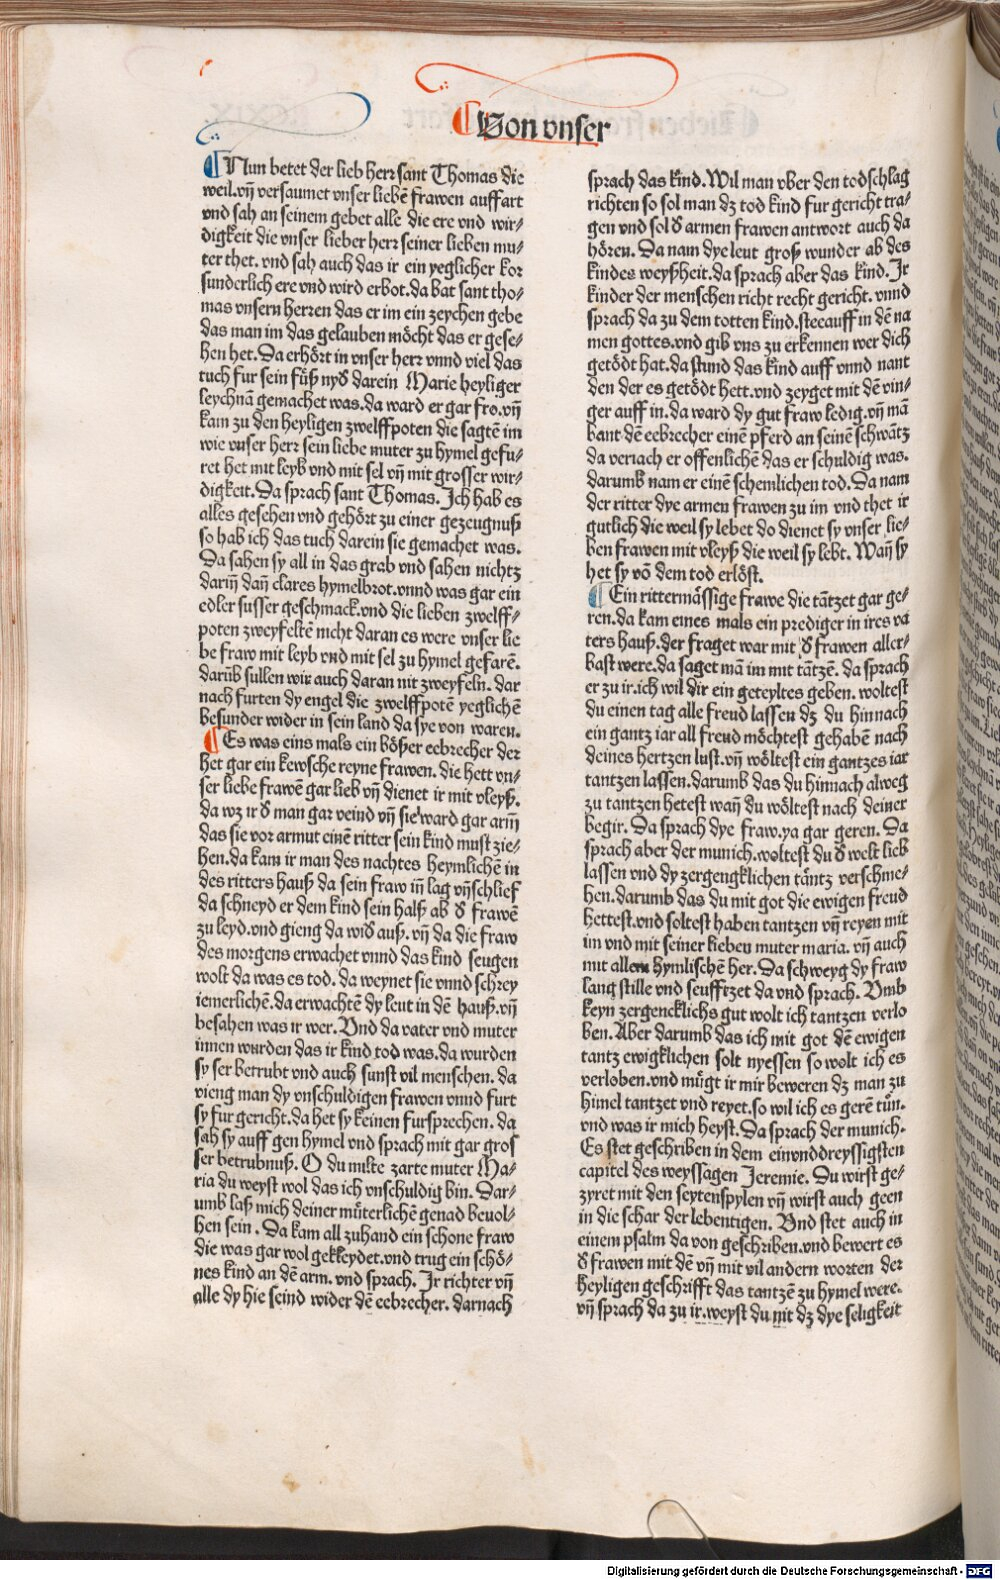 Von vnser
Nun betet der lieb herr sant Thomas die
weil.vn̄ versaumet vnser liebē frawen auffart
vnd sah an seinem gebet alle die ere vnd wir⸗
digkeit die vnser lieber herr seiner lieben mu⸗
ter thet.vnd sah auch das ir ein yeglicher kor
sunderlich ere vnd wird erbot.da bat sant tho⸗
mas vnsern herren das er im ein zeychen gebe
das man im das gelauben möcht das er gese⸗
hen het.Da erhört in vnser herr vnnd viel das
tuch fur sein fuͤß nyd̄ darein Marie heyliger
leychnā gemachet was.da ward er gar fro.vn̄
kam zu den heyligen zwelffpoten die sagtē im
wie vnser herr sein liebe muter zu hymel gefu⸗
ret het mit leyb vnd mit sel vn̄ mit grosser wir⸗
digkeit.Da sprach sant Thomas.Ich hab es
alles gesehen vnd gehört zu einer gezeugnuß
so hab ich das tuch darein sie gemachet was.
Da sahen sy all in das grab vnd sahen nichtz
darin̄ dan̄ clares hymelbrot.vnnd was gar ein
edler susser geschmack.vnd die lieben zwelff⸗
poten zweyfeltē nicht daran es were vnser lie
be fraw mit leyb vnd mit sel zu hymel gefarē.
darūb sullen wir auch daran nit zweyfeln. dar
nach furten dy engel die zwelffpotē yeglichē
besunder wider in sein land da sye von waren.
Es was eins mals ein bößer eebrecher der
het gar ein kewsche reyne frawen.die hett vn⸗
ser liebe frawē gar lieb vn̄ dienet ir mit vleyß.
da wz ir d̄ man gar veind vn̄ sie ward gar arm̄
das sie vor armut einē ritter sein kind must zie⸗
hen.da kam ir man des nachtes heymlichē in
des ritters hauß da sein fraw in̄ lag vn̄ schlief
da schneyd er dem kind sein halß ab d̄ frawē
zu leyd.vnd gieng da wid̄ auß. vn̄ da die fraw
des morgens erwachet vnnd das kind seugen
wolt da was es tod.da weynet sie vnnd schrey
iemerlichē.da erwachtē dy leut in dē hauß.vn̄
besahen was ir wer. Vnd da vater vnd muter
innen wurden das ir kind tod was.da wurden
sy ser betrubt vnd auch sunst vil menschen. da
vieng man dy vnschuldigen frawen vnnd furt
sy fur gericht.da het sy keinen fursprechen. da
sah sy auff gen hymel vnd sprach mit gar gros
ser betrubnuß. O du milte zarte muter Ma⸗
ria du weyst wol das ich vnschuldig bin. Dar⸗
umb laß mich deiner muͤterlichē genad beuol⸗
hen sein . Da kam all zuhand ein schone fraw
die was gar wol gekleydet.vnd trug ein schö⸗
nes kind an dē arm. vnd sprach. Ir richter vn̄
alle dy hie seind wider dē eebrecher. darnach
sprach das kind.Wil man vber den todschlag
richten so sol man dz tod kind fur gericht tra⸗
gen vnd sol d̄ armen frawen antwort auch da
hören. Da nam dye leut groß wunder ab des
kindes weyßheit.da sprach aber das kind. Ir
kinder der menschen richt recht gericht. vnnd
sprach da zu dem totten kind.stee auff in dē na
men gottes.vnd gib vns zu erkennen wer dich
getödt hat.da stund das kind auff vnnd nant
den der es getödt hett.vnd zeyget mit dē vin⸗
ger auff in.da ward dy gut fraw ledig.vn̄ mā
bant dē eebrecher einē pferd an seinē schwātz
da veriach er offenlichē das er schuldig was.
darumb nam er einē schemlichen tod. Da nam
der ritter dye armen frawen zu im vnd thet ir
gutlich die weil sy lebet do dienet sy vnser lie⸗
ben frawen mit vleyß die weil sy lebt. Wan̄ sy
het sy vō dem tod erlöst.
Ein rittermässige frawe die tātzet gar ge⸗
ren.da kam eines mals ein prediger in ires va
ters hauß.der fraget war mit d̄ frawen aller⸗
bast were.da saget mā im mit tātzē. da sprach
er zu ir.ich wil dir ein geteyltes geben. woltest
du einen tag alle freud lassen dz du hinnach
ein gantz iar all freud möchtest gehabē nach
deines hertzen lust.vn̄ wöltest ein gantzes iar
tantzen lassen.darumb das du hinnach alweg
zu tantzen hetest wan̄ du wöltest nach deiner
begir. Da sprach dye fraw.ya gar geren. Da
sprach aber der munich.woltest du d̄ welt lieb
lassen vnd dy zergengklichen täntz verschme⸗
hen.darumb das du mit got die ewigen freud
hettest.vnd soltest haben tantzen vn̄ reyen mit
im vnd mit seiner lieben muter maria. vn̄ auch
mit allem hymlischē her. Da schweyg dy fraw
lang stille vnd seufftzet da vnd sprach. Vmb
keyn zergencklichs gut wolt ich tantzen verlo
ben. Aber darumb das ich mit got dē ewigen
tantz ewigklichen solt nyessen so wolt ich es
verloben.vnd muͤgt ir mir beweren dz man zu
himel tantzet vnd reyet.so wil ich es gerē tuͦn.
vnd was ir mich heyst. Da sprach der munich.
Es stet geschriben in dem einvnddreyssigsten
capitel des weyssagen Jeremie. Du wirst ge⸗
zyret mit den seytenspylen vn̄ wirst auch geen
in die schar der lebentigen. Vnd stet auch in
einem psalm da von geschriben.vnd bewert es
d̄ frawen mit dē vn̄ mit vil andern worten der
heyligen geschrifft das tantzē zu hymel were.
vn̄ sprach da zu ir.weyst du nit dz dye seligkeit
Digitalisierung gefördert durch die Deutsche Forschungsgemeinschaft - DFG